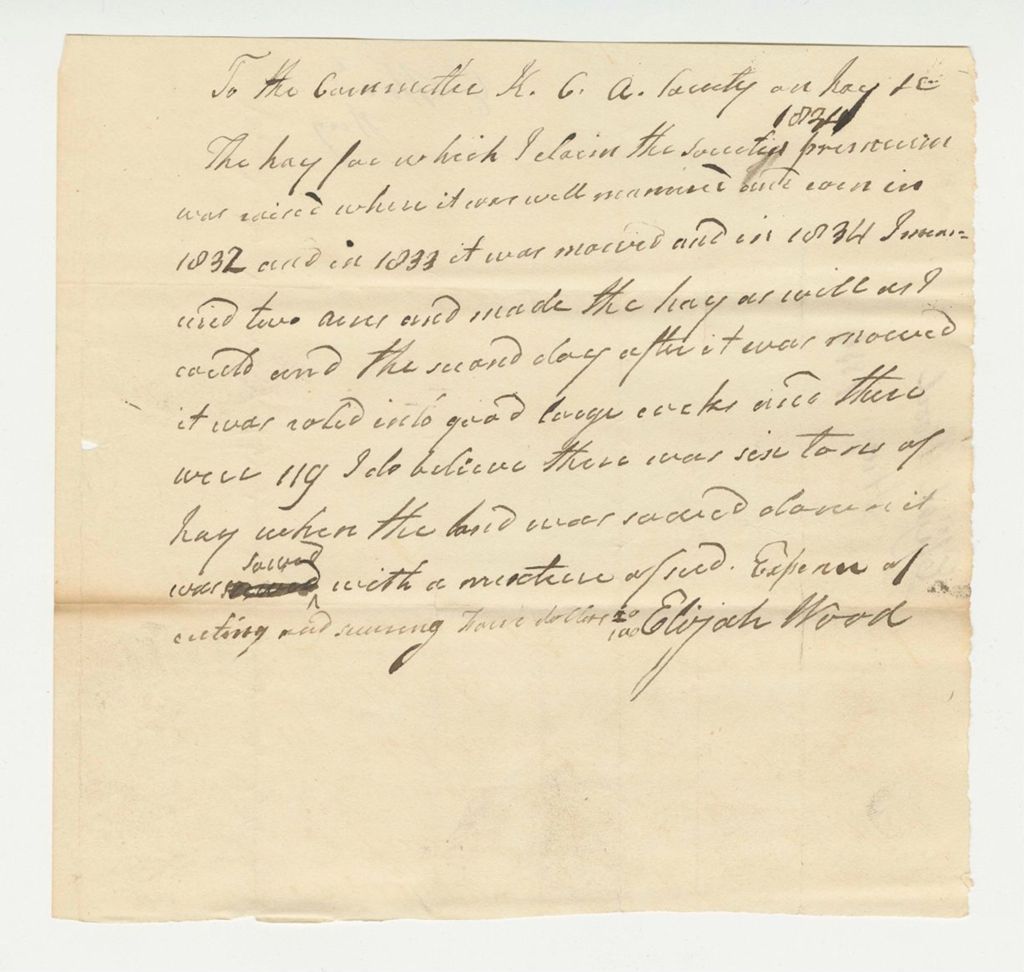 To the Committee K. C. A. Society on hay &c
1834
The hay for which I claim the societies premium
was raised where it was well manured and corn in
1832 and in 1833 it was mowed and in 1834 I mea=
ured two acres and made the hay as well as I
could and the second day after it was mowed
it was roled into good large cocks and there
were 119 I do believe there was six tons of
hay when the land was sowed down it
was sowed with a mixture of seed. Expense of
cuting and Four dollars 20/100 Elijah Wood